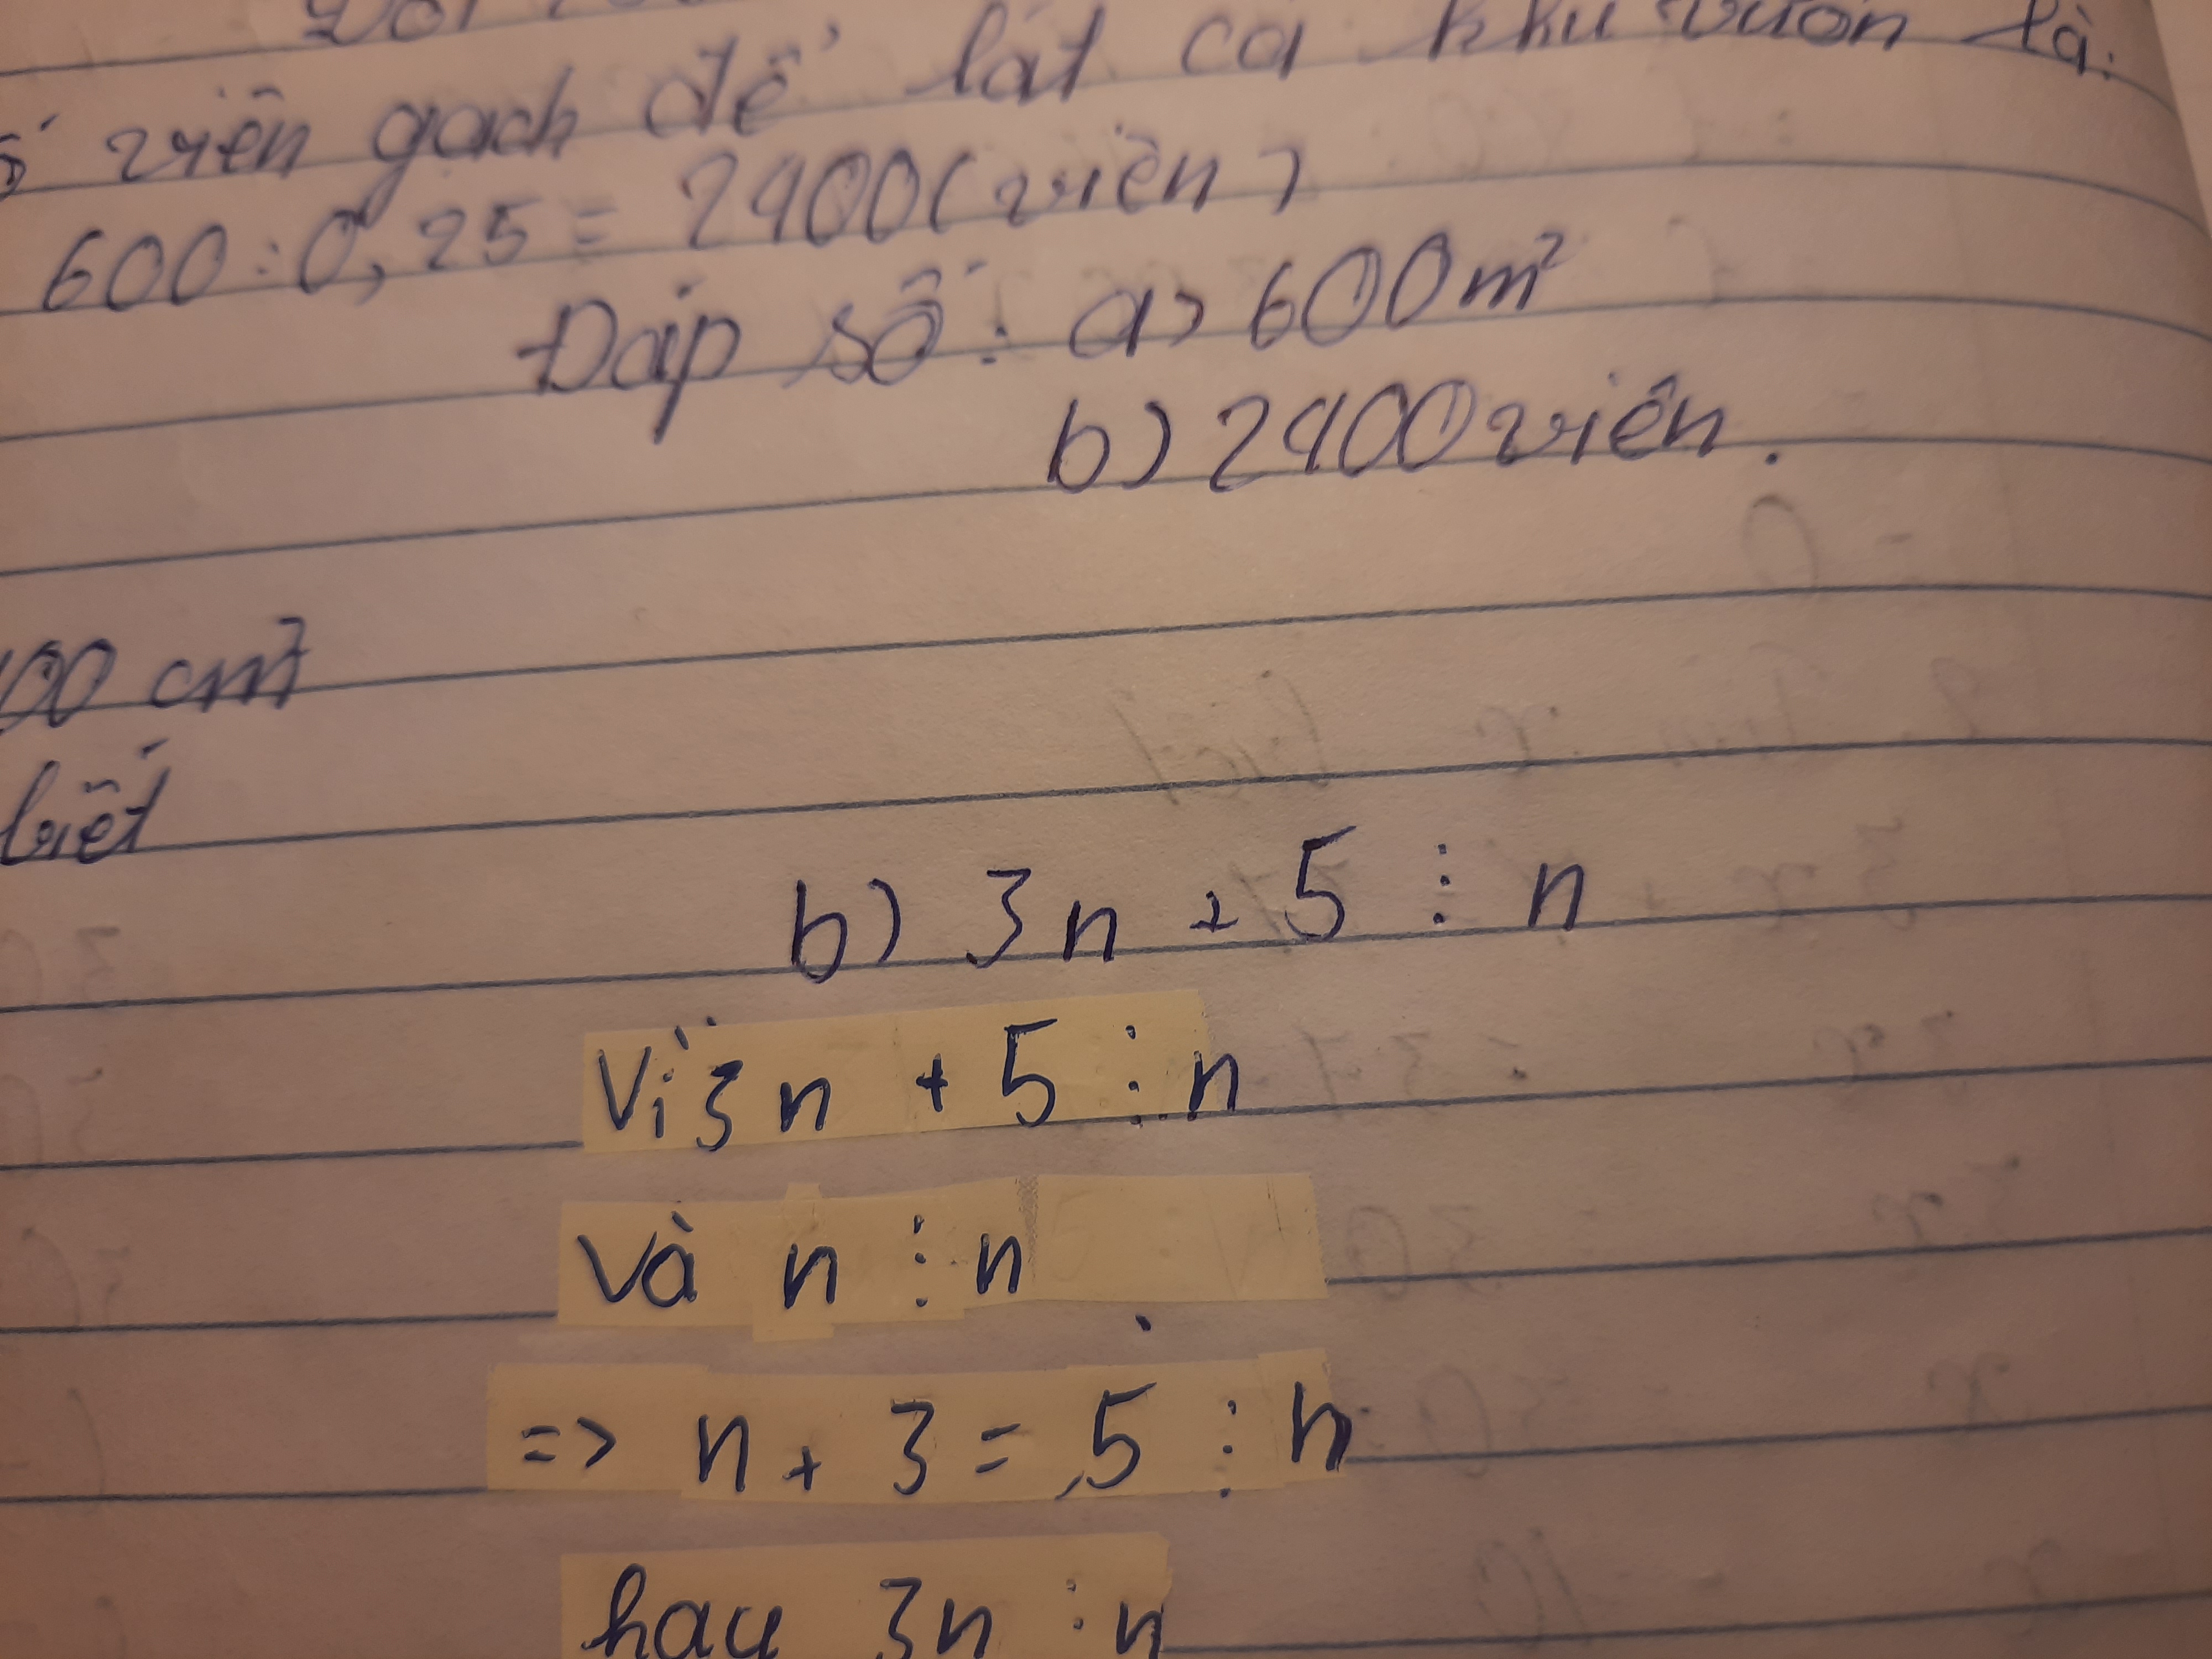 viên gạch để lát cả khu vườn là:
600 : 0,25 = 2400 (viên)
Đáp số : a) 600 m²
b) 2400 viên.
00 cm²
biết
b) 3n + 5 ⋮ n
Vì 3n + 5 ⋮ n
và n ⋮ n
=> n + 3 = 5 ⋮ n
hay 3n ⋮ n